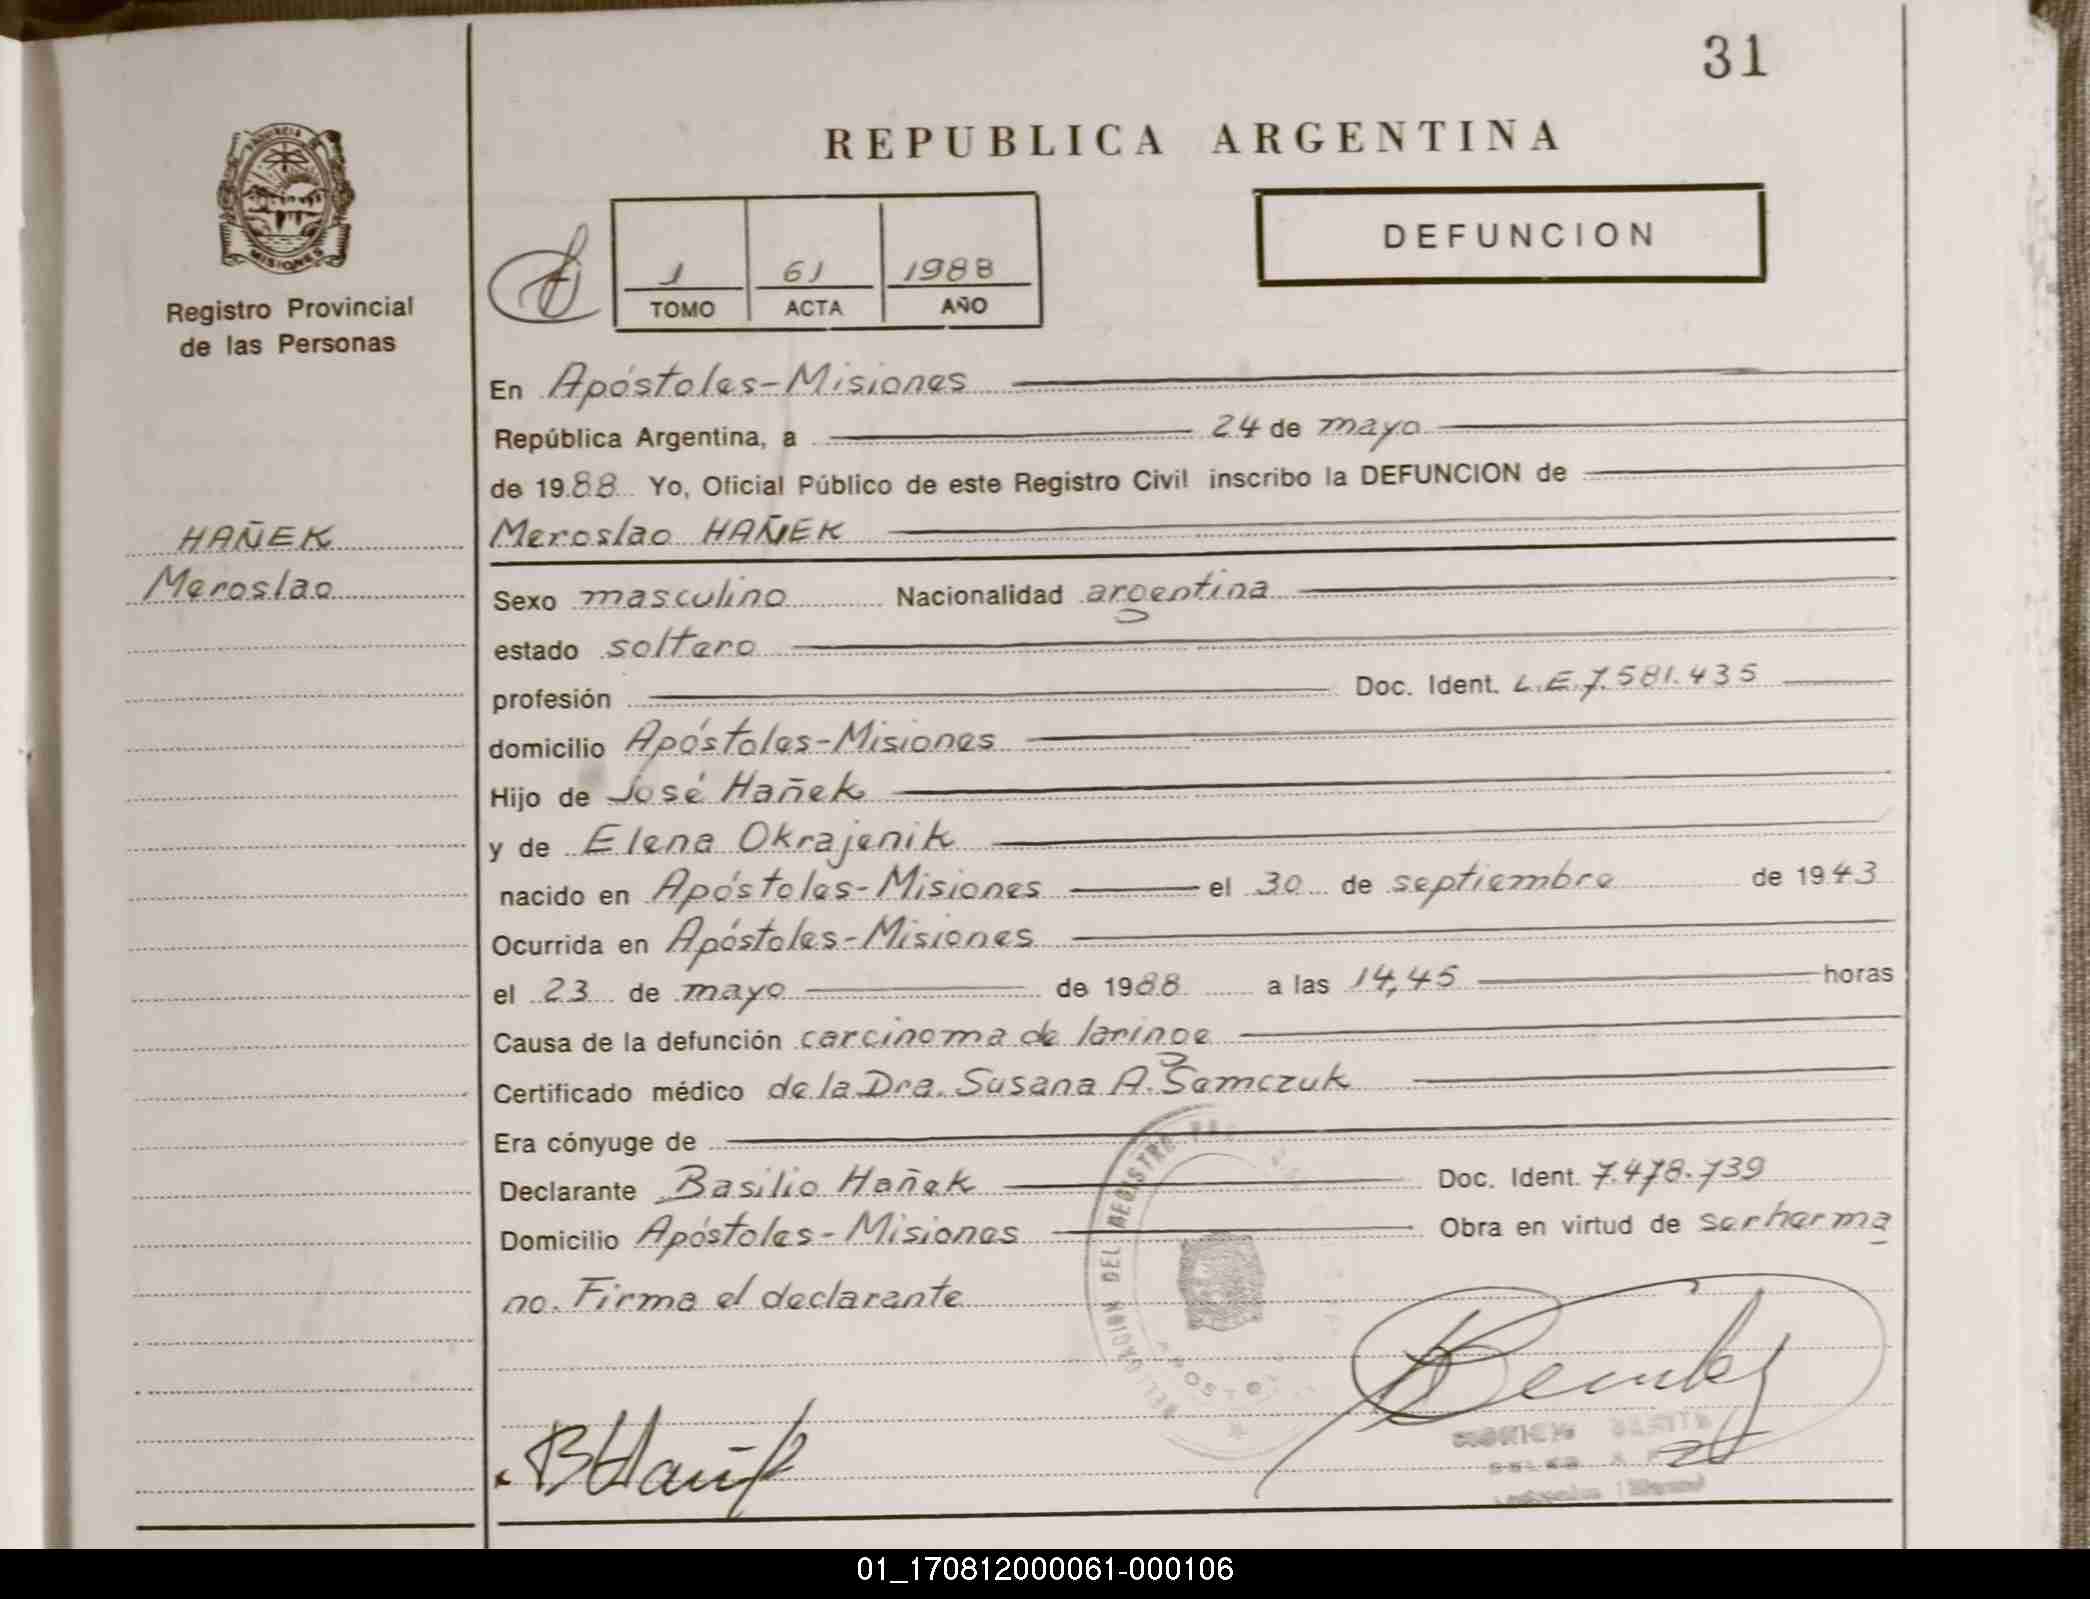 31
PROVINCIA DE
MISIONES
Registro Provincial
de las Personas
REPUBLICA ARGENTINA
DEFUNCION
1 61 1988
TOMO ACTA AÑO
En Apóstoles-Misiones
República Argentina, a 24 de mayo
de 1988 Yo, Oficial Público de este Registro Civil inscribo la DEFUNCION de
HAÑEK
Meroslao
Meroslao HAÑEK
Sexo masculino Nacionalidad argentina
estado soltero
profesión Doc. Ident. L.E.7.581.435
domicilio Apóstoles-Misiones
Hijo de José Hañek
y de Elena Okrajenik
nacido en Apóstoles-Misiones el 30 de septiembre de 1943
Ocurrida en Apóstoles-Misiones
el 23 de mayo de 1988 a las 14,45 horas
Causa de la defunción carcinoma de laringe
Certificado médico de la Dra. Susana A. Semczuk
Era cónyuge de
Declarante Basilio Hañek Doc. Ident. 7.478.739
Domicilio Apóstoles-Misiones Obra en virtud de ser herma
no. Firma el declarante
DEL REGISTRO
B Hañek
01_170812000061-000106